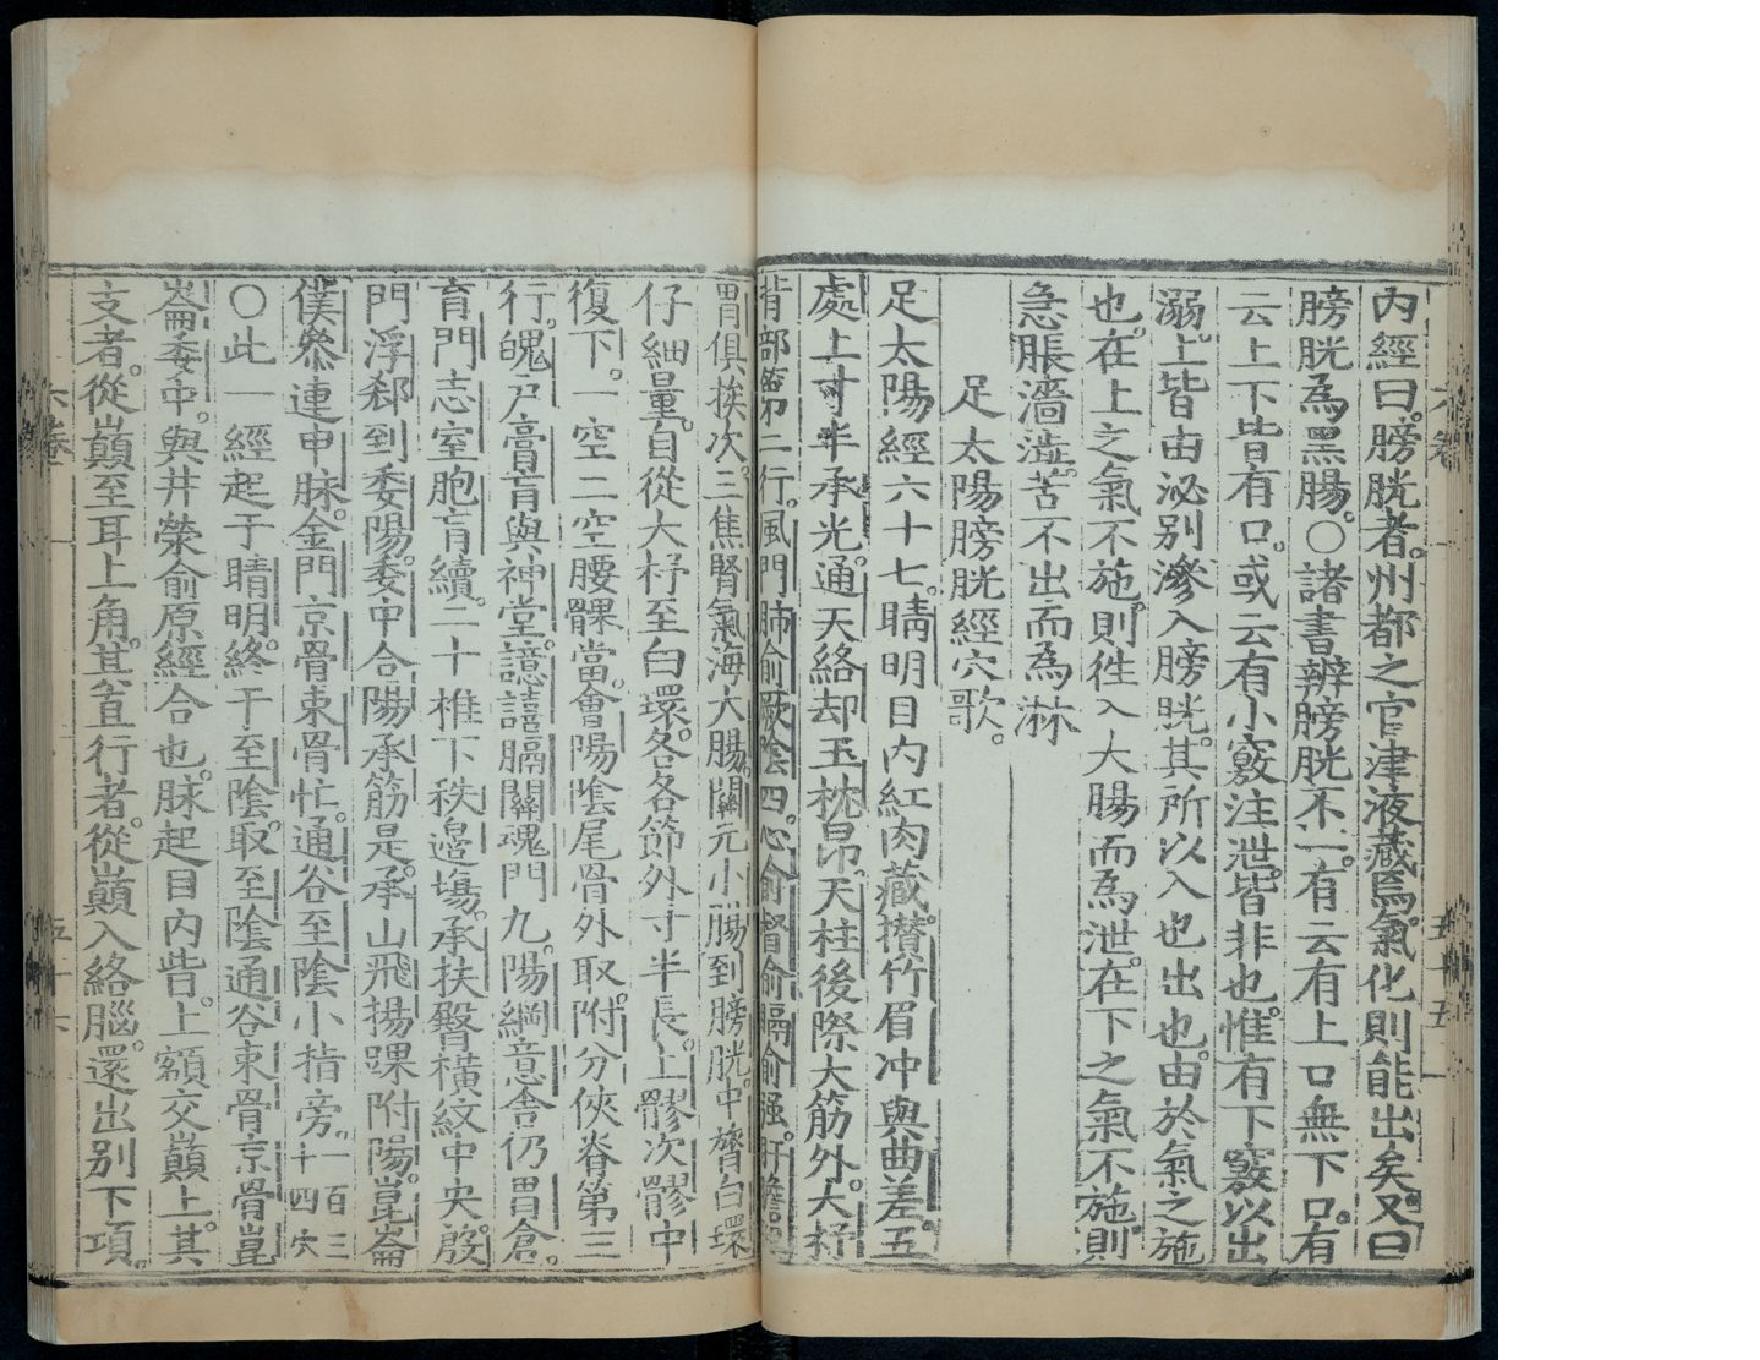 內經曰。膀胱者。州都之官。津液藏焉。氣化則能出矣。又曰
膀胱爲黑腸。〇諸書辨膀胱不一。有云有上口無下口。有
云上下皆有口。或云有小竅注泄。皆非也。惟有下竅以出
溺。上皆由泌别滲入膀胱。其所以入也出也。由於氣之施
也。在上之氣不施。則徃入大腸而爲泄。在下之氣不施。則
急脹濇澁。苦不出而爲淋
足太陽膀胱經穴歌。
足太陽經六十七。睛明目內紅肉藏。攅竹眉冲與曲差。五
處上寸半承光。通天絡却玉枕昂。天柱後際大筋外。大杼
背部第二行。風門肺俞厥陰四。心俞督俞膈俞强。肝膽
胃俱挨次。三焦腎氣海大腸。關元小腸到膀胱。中膂白環
仔細量。自從大杼至白環。各各節外寸半長。上髎次髎中
復下。一空二空腰髁當。會陽陰尾骨外取。附分俠脊第三
行。魄戸膏肓與神堂。譩譆膈關魂門九。陽綱意舎仍胃倉。
肓門志室胞肓續。二十椎下秩邉塲。承扶臀橫紋中央。殷
門浮郄到委陽。委中合陽承筋是。承山飛揚踝附陽。崑崙
僕叅連申脉。金門京骨束骨忙。通谷至陰小指旁。一百三十四穴
〇此一經起于睛明。終于至陰。取至陰通谷束骨京骨崑
崙委中。與井滎俞原經合也。脉起目內眥。上額交巔上。其
支者。從巔至耳上角。其直行者。從巔入絡腦。還出别下項。
六卷
五十五
六卷
五十六